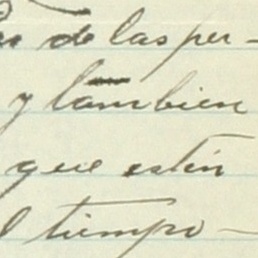 de las per-
y tambien
que estén
tiempo